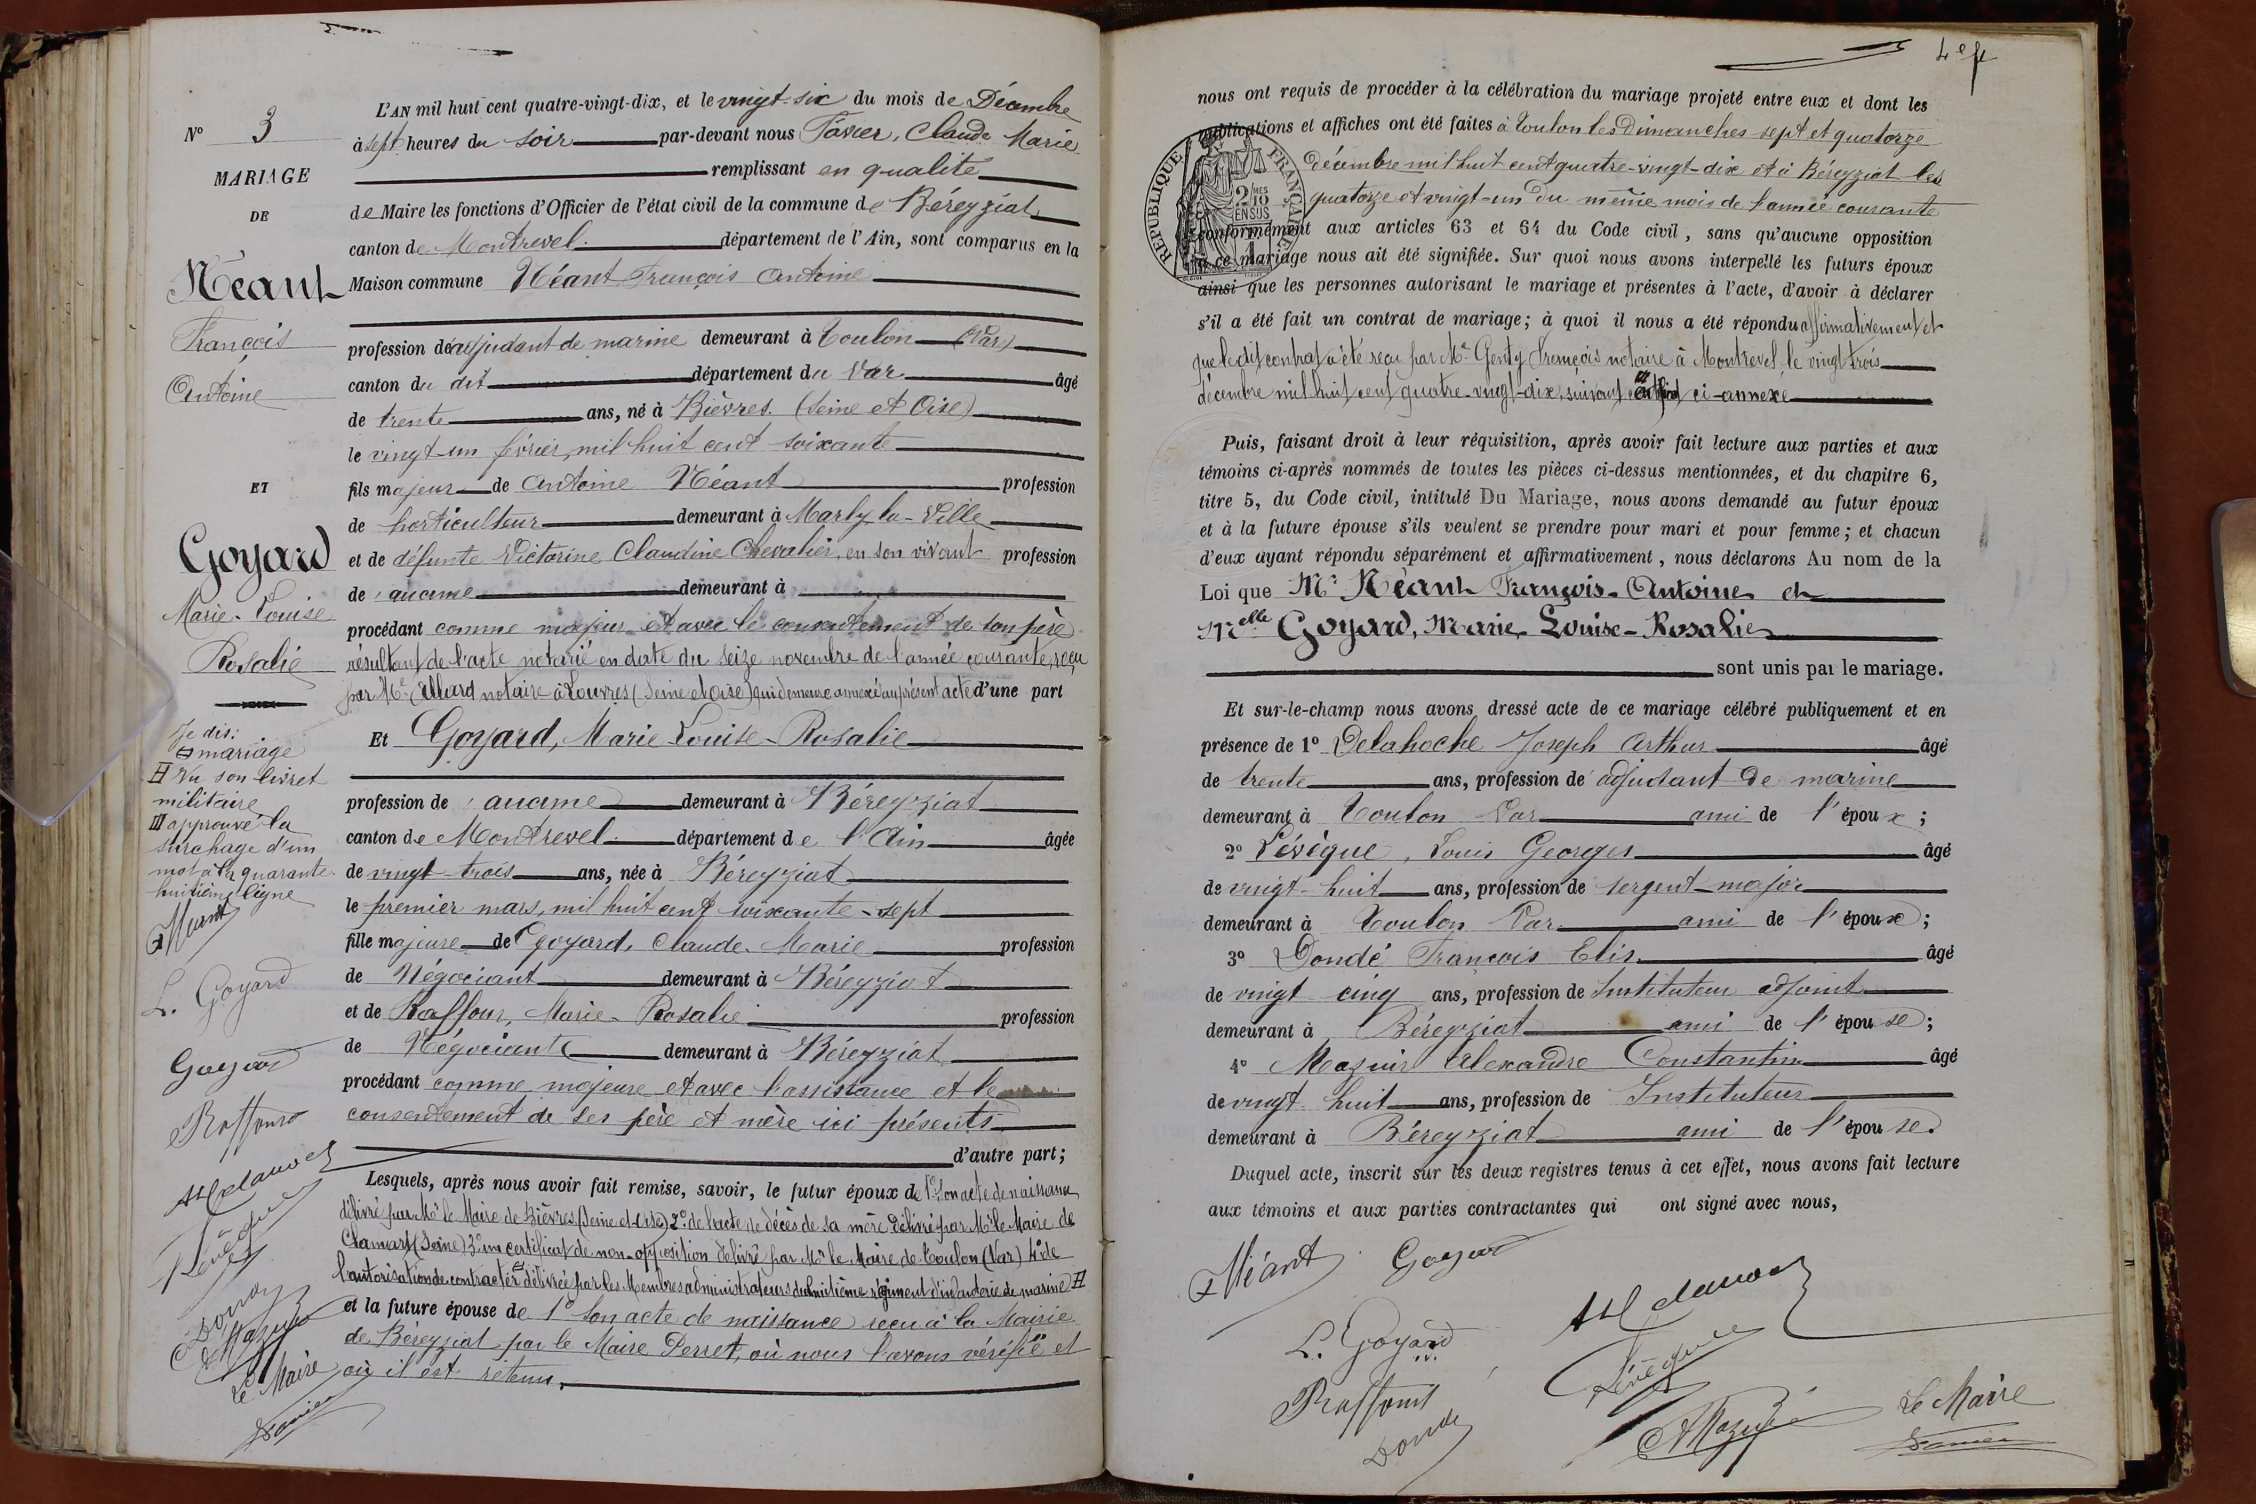 N° 3
MARIAGE
DE
Néant
François
Antoine
ET
Goyard
Marie-Louise
Rosalie
Je dis:
mariage
Vu son livret
militaire
III approuvé la
surchage d'un
mot à la quarante
huitième ligne
Néant
L. Goyard
Goyard
Raffour
Lévêque
Dondé
Le Maire
L'AN mil huit cent quatre-vingt-dix, et le vingt-six du mois de Décembre
à sept heures du soir par-devant nous Favier, Claude Marie
remplissant en qualité
de Maire les fonctions d'Officier de l'état civil de la commune de Béreyziat
canton de Montrevel département de l'Ain, sont comparus en la
Maison commune Néant François Antoine
profession de adjudant de marine demeurant à Toulon (Var)
canton du dit département du Var âgé
de trente ans, né à Bièvres (Seine et Oise)
le vingt-un février, mil huit cent soixante
fils majeur de Antoine Néant profession
de horticulteur demeurant à Marly-la-Ville
et de défunte Victorine Claudine Chevalier, en son vivant profession
de aucune demeurant à
procédant comme majeur et avec le consentement de son père
résultant de l'acte notarié en date du seize novembre de l'année courante, reçu
par Me Allard notaire à Louvres (Seine et Oise) qui demeure annexé au présent acte d'une part
Et Goyard, Marie Louise-Rosalie
profession de aucune demeurant à Béreyziat
canton de Montrevel département de l'Ain âgée
de vingt-trois ans, née à Béreyziat
le premier mars, mil huit cent soixante-sept
fille majeure de Goyard, Claude-Marie profession
de Négociant demeurant à Béreyziat
et de Raffour, Marie-Rosalie profession
de Négociante demeurant à Béreyziat
procédant comme majeure et avec l'assistance et le
consentement de ses père et mère ici présents
d'autre part;
Lesquels, après nous avoir fait remise, savoir, le futur époux de 1° son acte de naissance
délivré par Mr le Maire de Bièvres (Seine-et-Oise) 2° de l'acte de décès de sa mère délivré par Mr le Maire de
Clamart (Seine) 3° un certificat de non-opposition délivré par Mr le Maire de Toulon (Var) 4° de
l'autorisation de contracter délivrée par les Membres administrateurs du huitième régiment d'infanterie de marine
et la future épouse de 1° son acte de naissance reçu à la Mairie
de Béreyziat par le Maire Perret, où nous l'avons vérifié et
où il est retenu.
4e f
nous ont requis de procéder à la célébration du mariage projeté entre eux et dont les
publications et affiches ont été faites à Toulon les Dimanches sept et quatorze
décembre mil huit cent quatre-vingt-dix et à Béreyziat les
quatorze et vingt-un du même mois de l'année courante
conformément aux articles 63 et 64 du Code civil, sans qu'aucune opposition
à ce mariage nous ait été signifiée. Sur quoi nous avons interpellé les futurs époux
ainsi que les personnes autorisant le mariage et présentes à l'acte, d'avoir à déclarer
s'il a été fait un contrat de mariage; à quoi il nous a été répondu affirmativement et
que le dit contrat a été reçu par Me Genty François notaire à Montrevel le vingt trois
décembre mil huit cent quatre-vingt-dix, suivant certificat ci-annexé
REPUBLIQUE FRANÇAISE
Puis, faisant droit à leur réquisition, après avoir fait lecture aux parties et aux
témoins ci-après nommés de toutes les pièces ci-dessus mentionnées, et du chapitre 6,
titre 5, du Code civil, intitulé Du Mariage, nous avons demandé au futur époux
et à la future épouse s'ils veulent se prendre pour mari et pour femme; et chacun
d'eux ayant répondu séparément et affirmativement, nous déclarons Au nom de la
Loi que Mr Néant François-Antoine et
Melle Goyard, Marie-Louise-Rosalie
sont unis par le mariage.
Et sur-le-champ nous avons dressé acte de ce mariage célébré publiquement et en
présence de 1° Delahoche Joseph Arthur âgé
de trente ans, profession de adjudant de marine
demeurant à Toulon Var ami de l'époux;
2° Lévêque, Louis Georges âgé
de vingt-huit ans, profession de sergent-major
demeurant à Toulon Var ami de l'époux;
3° Dondé François Elis âgé
de vingt cinq ans, profession de Instituteur adjoint
demeurant à Béreyziat ami de l'épouse;
4° Mazuir Alexandre Constantin âgé
de vingt huit ans, profession de Instituteur
demeurant à Béreyziat ami de l'épouse.
Duquel acte, inscrit sur les deux registres tenus à cet effet, nous avons fait lecture
aux témoins et aux parties contractantes qui ont signé avec nous,
Néant Goyard
L. Goyard
Lévêque
Raffour
Dondé
Le Maire